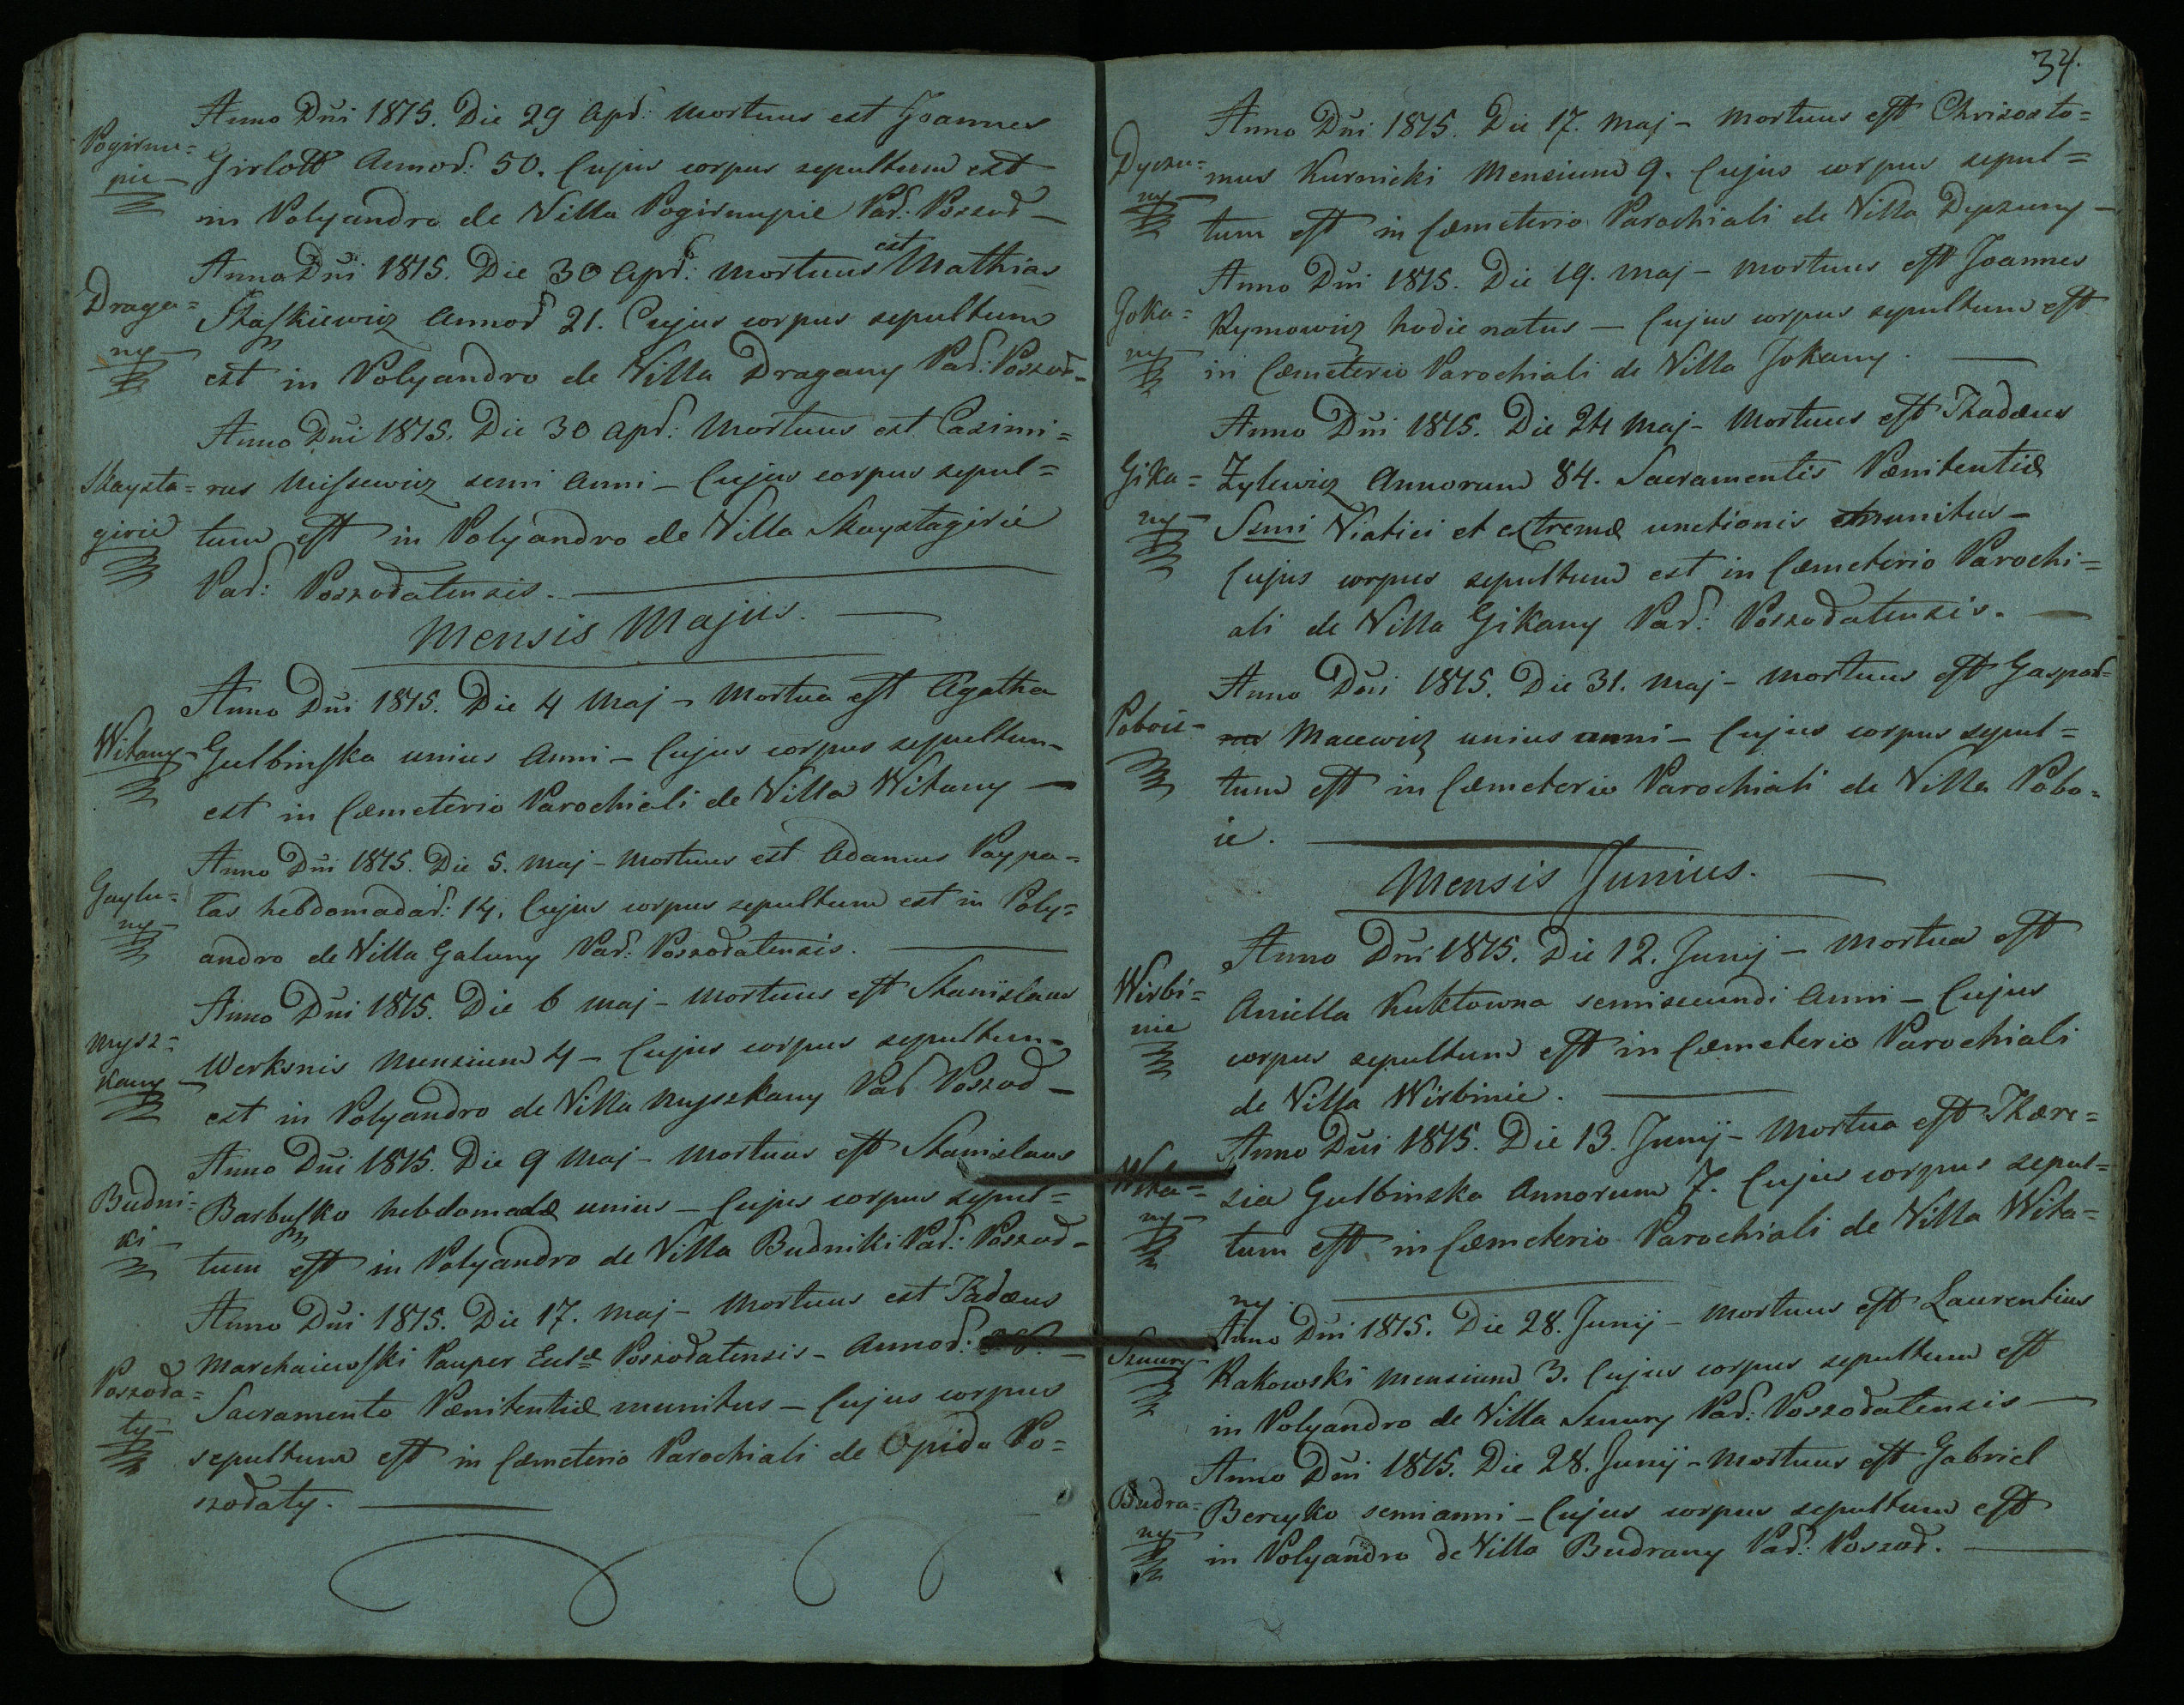 Anno Dni 1815. Die 29 Apr: Mortuus est Joannes
Pogirnu=
pie
Girlott Annor: 50. Cujus corpus sepultum est
in Polyandro de Villa Pogirnupie Par: Poszod
Anno Dni 1815. Die 30 Apr: Mortuus est Mathias
Draga=
ny
Staskiewicz Annor 21. Cujus corpus sepultum
est in Polyandro de Villa Dragany Par: Poszod
Anno Dni 1815. Die 30 Apr: Mortuus est Casimi=
Skaysta=
girie
rus Missewicz semi Anni – Cujus corpus sepul=
tum est in Polyandro de Villa Skaystagirie
Par: Poszodatensis.
Mensis Majus.
Anno Dni 1815. Die 4 Maj – Mortua est Agatha
Witany
Gulbinska unius Anni – Cujus corpus sepultum
est in Cæmeterio Parochiali de Villa Witany
Anno Dni 1815. Die 5. Maj – Mortuus est Adamus Paypa=
Gaylu=
ny
las hebdomadar: 14. Cujus corpus sepultum est in Poly=
andro de Villa Galuny Par: Poszodatensis.
Anno Dni 1815. Die 6 Maj – Mortuus est Stanislaus
Mysz=
kany
Werksnis Mensium 4 – Cujus corpus sepultum
est in Polyandro de Villa Myszkany Par Poszod
Anno Dni 1815. Die 9 Maj – Mortuus est Stanislaus
Budni=
ki
Barbusko hebdomadæ unius – Cujus corpus sepul=
tum est in Polyandro de Villa Budniki Par: Poszod
Anno Dni 1815. Die 17. Maj – Mortuus est Tadæus
Poszoda=
ty
Marchaiewski Pauper Eclæ Poszodatensis – Annor:
Sacramento Pænitentiæ munitus – Cujus corpus
sepultum est in Cæmeterio Parochiali de Opido Po=
szodaty.
34.
Anno Dni 1815. Die 17. Maj – Mortuus est Chrisosto=
Dyrzu=
ny
mus Kurnicki Mensium 9. Cujus corpus sepul=
tum est in Cæmeterio Parochiali de Villa Dyrzuny
Anno Dni 1815. Die 19. Maj – Mortuus est Joannes
Joka=
ny
Rymowicz hodie natus – Cujus corpus sepultum est
in Cæmeterio Parochiali de Villa Jokany.
Anno Dni 1815. Die 24 Maj – Mortuus est Thadæus
Gika=
ny
Zylewicz Annorum 84. Sacramentis Pænitentiæ
Ssmi Viatici et extremæ unctionis munitus –
Cujus corpus sepultum est in Cæmeterio Parochi=
ali de Villa Gikany Par: Poszodatensis.
Anno Dni 1815. Die 31. Maj – Mortuus est Gaspar
Poboie
Macewicz unius anni – Cujus corpus sepul=
tum est in Cæmeterio Parochiali de Villa Pobo=
ie.
Mensis Junius.
Anno Dni 1815. Die 12. Junij – Mortua est
Wirbi=
nie
Aniella Kuktowna semisecundi Anni – Cujus
corpus sepultum est in Cæmeterio Parochiali
de Villa Wirbinie.
Anno Dni 1815. Die 13. Junij – Mortua est Thære=
Wita=
ny
sia Gulbinska Annorum 7. Cujus corpus sepul=
tum est in Cæmeterio Parochiali de Villa Wita=
ny.
Anno Dni 1815. Die 28. Junij – Mortuus est Laurentius
Szuury
Rakowski Mensium 3. Cujus corpus sepultum est
in Polyandro de Villa Szuury Par: Poszodatensis
Anno Dni 1815. Die 28. Junij – Mortuus est Gabriel
Budra=
ny
Bereyko semianni – Cujus corpus sepultum est
in Polyandro de Villa Budrany Par: Poszod.